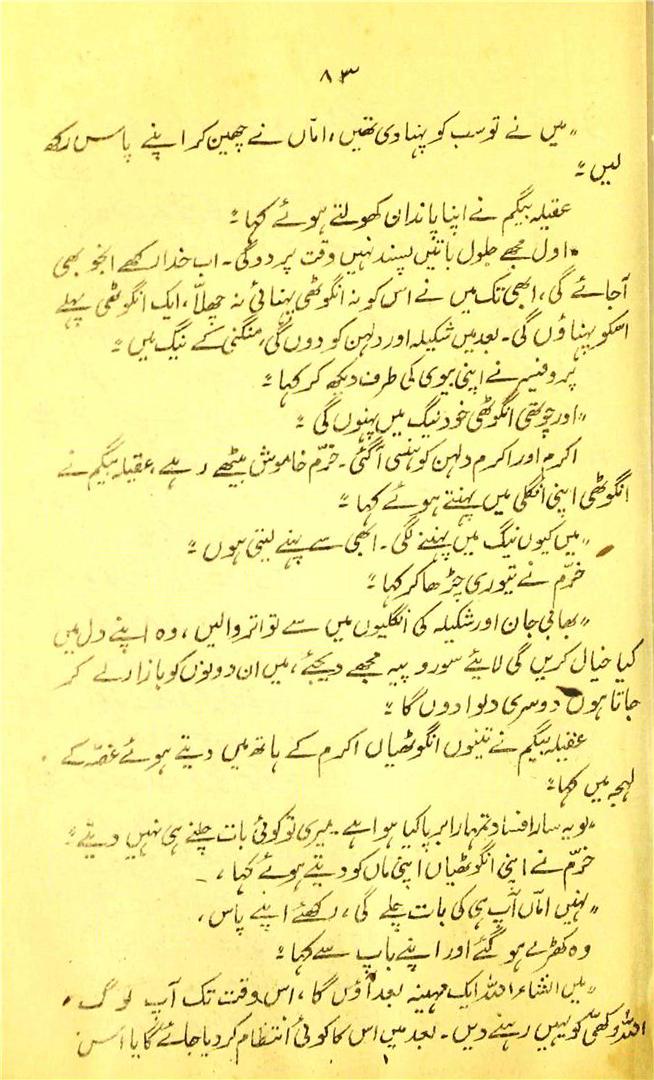 ۸۳
"میں نے تو سب کو پہنا دی تھیں، اماں نے چھین کر اپنے پاس رکھ
لیں۔"
عقیلہ بیگم نے اپنا پاندان کھولتے ہوئے کہا۔"
"اول مجھے جلول باتیں پسند نہیں وقت پر دوگی۔ اب خدا رکھے انجو بھی
آجائے گی، ابھی تک میں نے اس کو نہ انگوٹھی پہنائی نہ چھلا، ایک انگوٹھی پہلے
اسکو پہناؤں گی۔ بعد میں شکیلہ اور دلہن کو دوں گی، منگنی کے نیگ میں۔"
پروفیسر نے اپنی بیوی کی طرف دیکھ کر کہا۔"
"اور چوتھی انگوٹھی خود نیگ میں پہنوں گی۔"
اکرم اور اکرم دلہن کو ہنسی آگئی۔ خرّم خاموش بیٹھے رہے، عقیلہ بیگم نے
انگوٹھی اپنی انگلی میں پہنتے ہوئے کہا۔"
"میں کیوں نیگ میں پہننے لگی۔ ابھی سے پہنے لیتی ہوں۔"
خرّم نے تیوری چڑھا کر کہا۔"
"بھابی جان اور شکیلہ کی انگلیوں میں سے تو اتروالیں، وہ اپنے دل میں
کیا خیال کریں گی لائیے سو روپیہ مجھے دیجئے، میں ان دونوں کو بازار لے کر
جاتا ہوں دوسری دلوا دوں گا۔"
عقیلہ بیگم نے تینوں انگوٹھیاں اکرم کے ہاتھ میں دیتے ہوئے غصّہ کے
لہجہ میں کہا۔"
"لو یہ سارا فساد تمہارا برپا کیا ہوا ہے۔ میری تو کوئی بات چلنے ہی نہیں دیتے۔"
خرّم نے اپنی انگوٹھیاں اپنی ماں کو دیتے ہوئے کہا،۔
"نہیں اماں آپ ہی کی بات چلے گی، رکھئے اپنے پاس،
وہ کھڑے ہو گئے اور اپنے باپ سے کہا۔"
"میں انشاء اللہ ایک مہینہ بعد آؤں گا، اس وقت تک آپ لوگ
اللہ رکھی کو یہیں رہنے دیں۔ بعد میں اس کا کوئی انتظام کر دیا جائے گا یا اسی